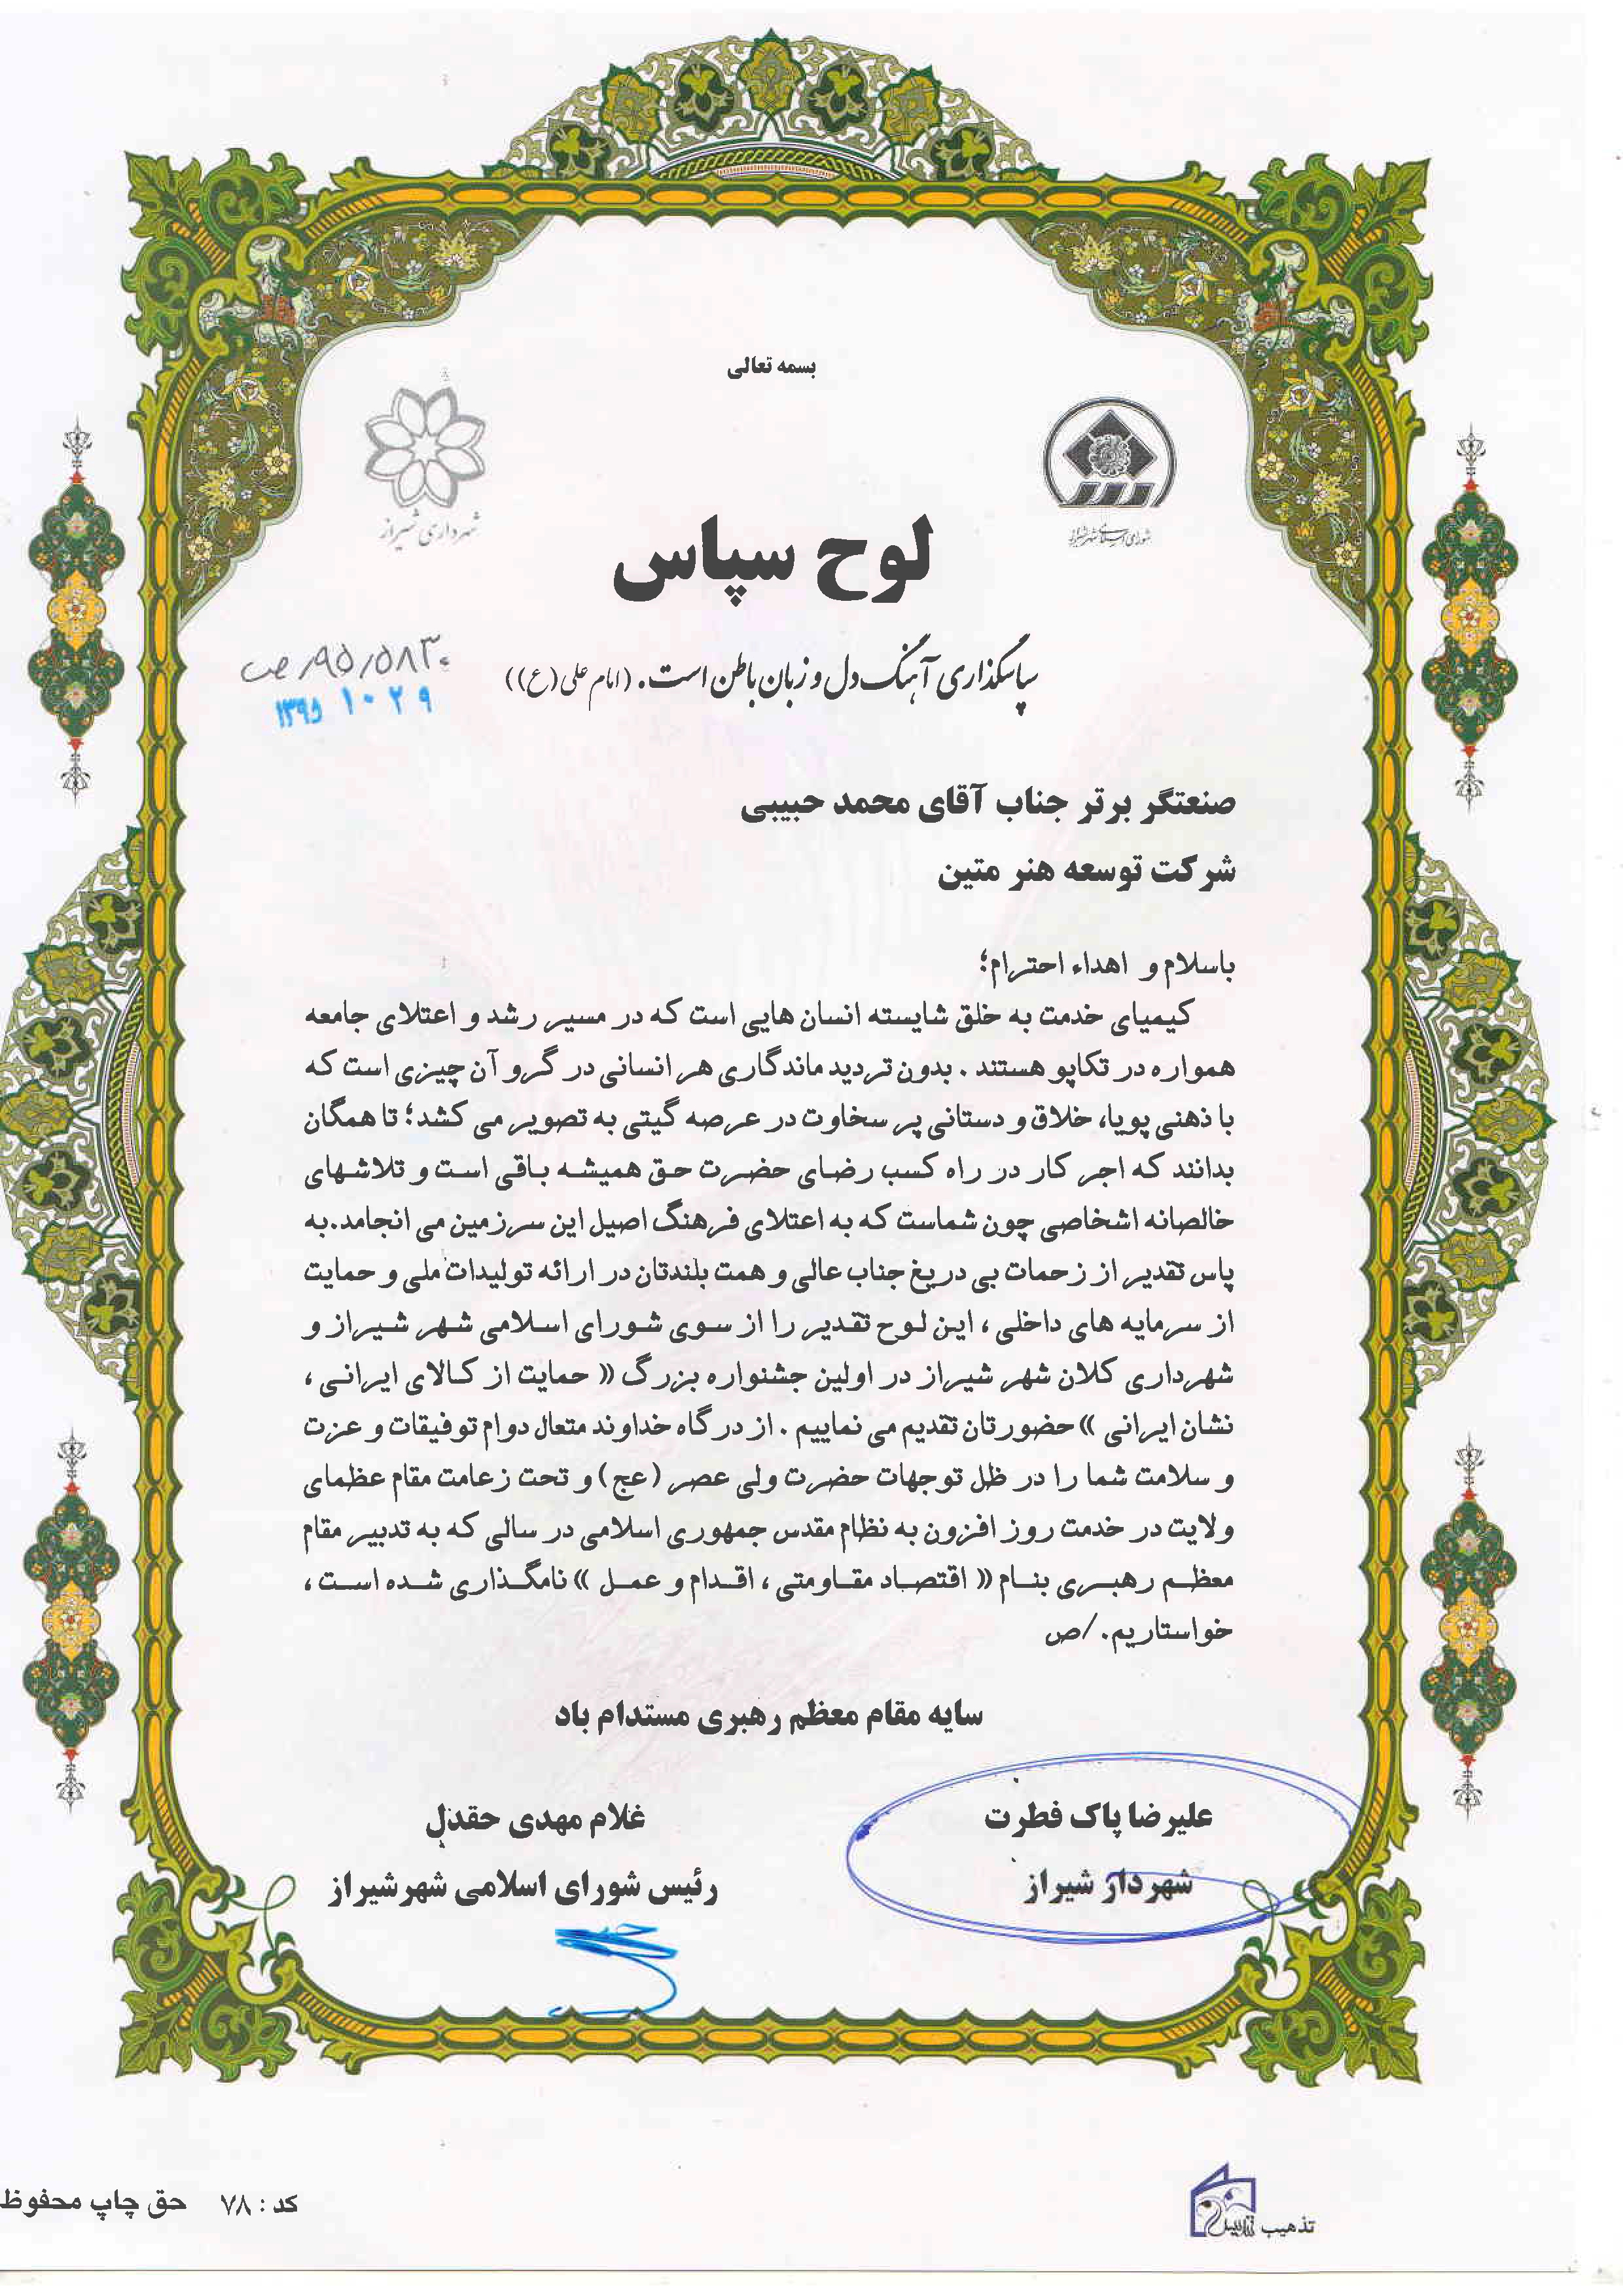 بسمه تعالی
شهرداری شیراز
شورای اسلامی شهر شیراز
لوح سپاس
سپاسگذاری آهنگ دل و زبان باطن است. (امام علی (ع))
۹۵/۵۸۳۰/ص
۱۳۹۵ ۱۰ ۲۹
صنعتگر برتر جناب آقای محمد حبیبی
شرکت توسعه هنر متین
باسلام و اهداء احترام؛
کیمیای خدمت به خلق شایسته انسان هایی است که در مسیر رشد و اعتلای جامعه
همواره در تکاپو هستند . بدون تردید ماندگاری هر انسانی در گرو آن چیزی است که
با ذهنی پویا، خلاق و دستانی پر سخاوت در عرصه گیتی به تصویر می کشد؛ تا همگان
بدانند که اجر کار در راه کسب رضای حضرت حق همیشه باقی است و تلاشهای
خالصانه اشخاصی چون شماست که به اعتلای فرهنگ اصیل این سرزمین می انجامد.به
پاس تقدیر از زحمات بی دریغ جناب عالی و همت بلندتان در ارائه تولیدات ملی و حمایت
از سرمایه های داخلی ، این لوح تقدیر را از سوی شورای اسلامی شهر شیراز و
شهرداری کلان شهر شیراز در اولین جشنواره بزرگ « حمایت از کالای ایرانی ،
نشان ایرانی » حضورتان تقدیم می نماییم . از درگاه خداوند متعال دوام توفیقات و عزت
و سلامت شما را در ظل توجهات حضرت ولی عصر (عج) و تحت زعامت مقام عظمای
ولایت در خدمت روز افزون به نظام مقدس جمهوری اسلامی در سالی که به تدبیر مقام
معظم رهبری بنام « اقتصاد مقاومتی ، اقدام و عمل » نامگذاری شده است ،
خواستاریم. /ص
سایه مقام معظم رهبری مستدام باد
علیرضا پاک فطرت
شهردار شیراز
غلام مهدی حقدل
رئیس شورای اسلامی شهرشیراز
تذهیب
کد : ۷۸ حق چاپ محفوظ